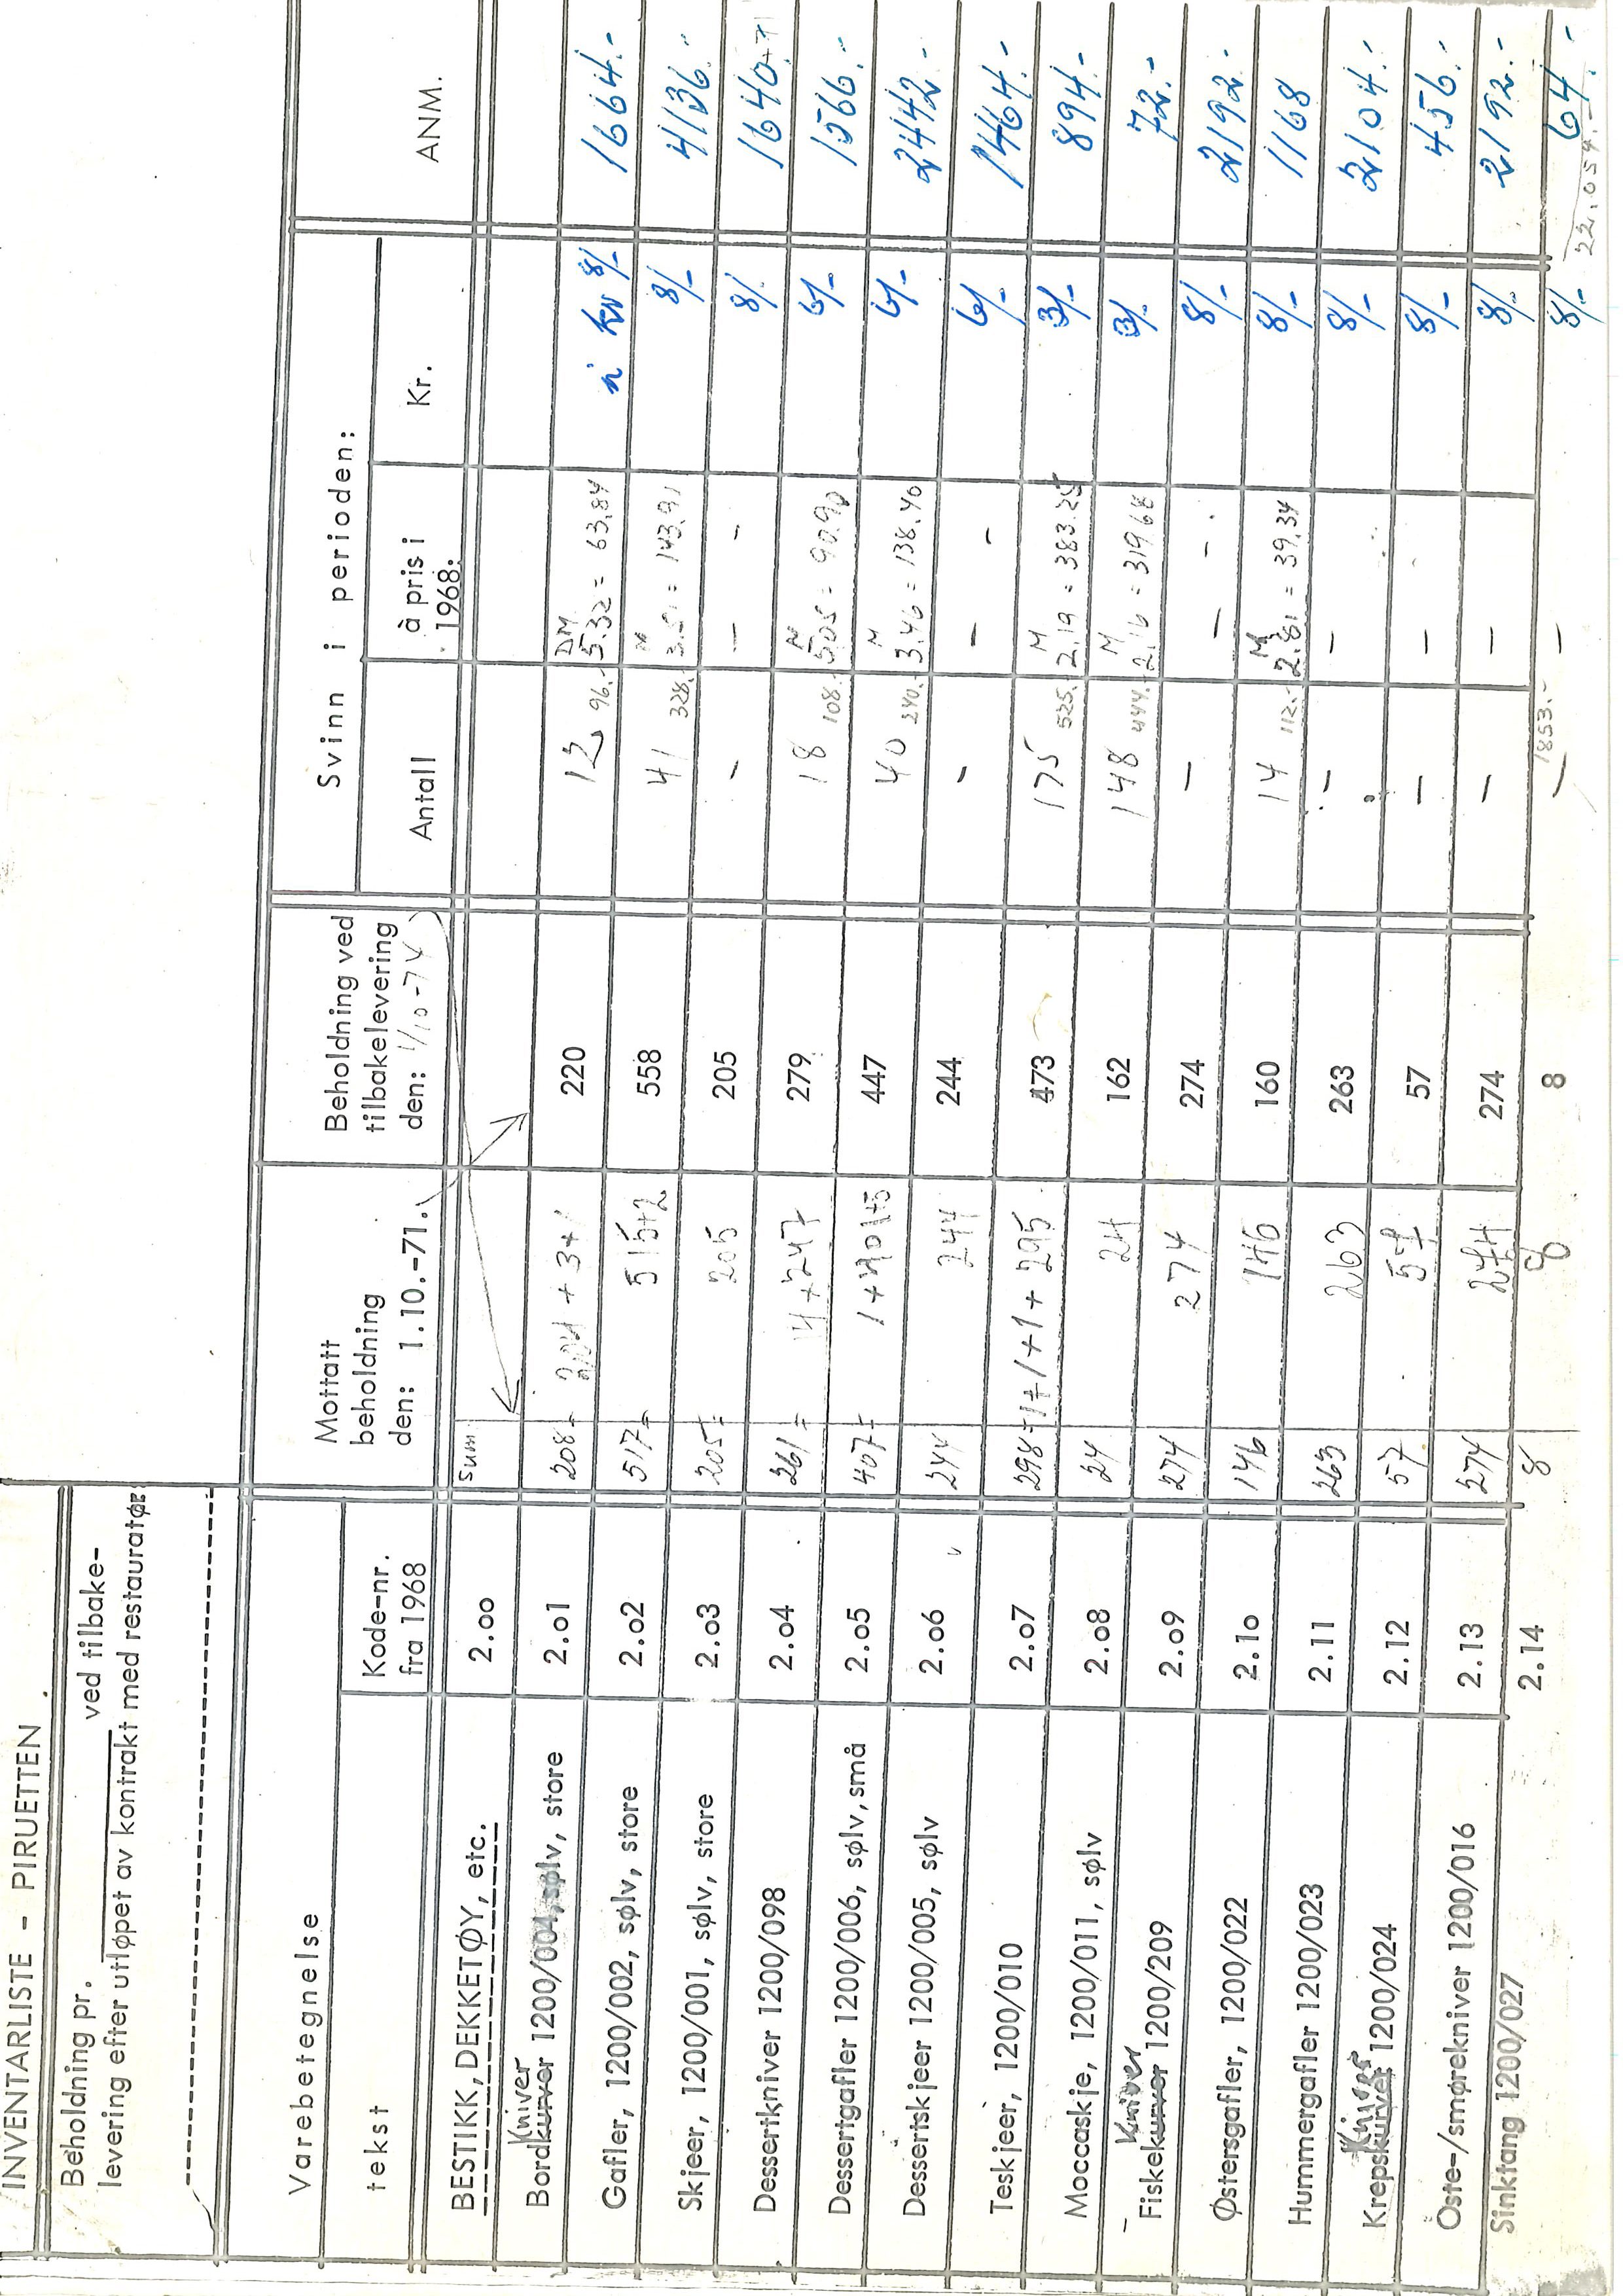 INVENTARLISTE - PIRUETTEN
Beholdning pr. ved tilbake-
levering efter utløpet av kontrakt med restauratør:
Varebetegnelse Mottatt beholdning den: 1.10.-71. Beholdning ved tilbakelevering den: 1/10-74 Svinn i perioden: ANM.
tekst Kode-nr. fra 1968 Antall à pris i 1968: Kr.
BESTIKK, DEKKETØY, etc. 2.oo Sum
Kniver
Bordkurver 1200/004, sølv, store 2.o1 208 = 204 + 3+1 220 12 96.- DM 5.32 = 63.84 à kr 8/- 1664.-
Gafler, 1200/002, sølv, store 2.o2 517 = 515+2 558 41 328.- 3.51 = 143.91 8/- 4136.-
Skjeer, 1200/001, sølv, store 2.o3 205 = 205 205 - - - 8/- 1640.-
Dessertkniver 1200/098 2.o4 261 = 14+247 279 18 108.- 5.05 = 90.90 6/- 1566.-
Dessertgafler 1200/006, sølv, små 2.o5 407 = 1+401+5 447 40 240.- M 3.46 = 138.40 6/- 2442.-
Dessertskjeer 1200/005, sølv 2.o6 244 244 244 - - - 6/- 1464.-
Teskjeer, 1200/010 2.o7 298 = 1+1+1+295 473 175 525.- M 2.19 = 383.25 3/- 894.-
Moccaskje, 1200/011, sølv 2.o8 24 24 162 148 444.- M 2.16 = 319.68 3/- 72.-
Kniver
Fiskekurver 1200/209 2.o9 274 274 274 - - - 8/- 2192.-
Østersgafler, 1200/022 2.1o 146 146 160 14 112.- M 2.81 = 39.34 8/- 1168
Hummergafler 1200/023 2.11 263 263 263 - - 8/- 2104.-
Kniver
Krepskurver 1200/024 2.12 57 57 57 - - 8/- 456.-
Oste-/smørekniver 1200/016 2.13 274 274 274 - - 8/- 2192.-
Sinktang 1200/027 2.14 8 8 8 - - 8/- 64.-
1853.- 22.054.-